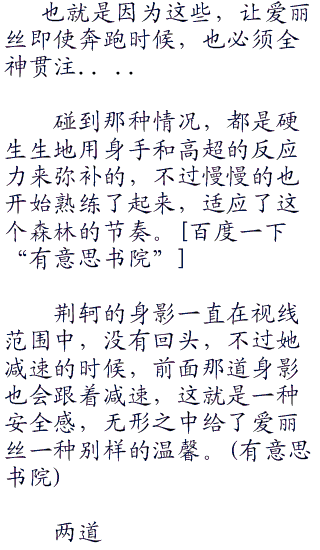 也就是因为这些，让爱丽
丝即使奔跑时候，也必须全
神贯注．．．．
碰到那种情况，都是硬
生生地用身手和高超的反应
力来弥补的，不过慢慢的也
开始熟练了起来，适应了这
个森林的节奏。[百度一下
“有意思书院”]
荆轲的身影一直在视线
范围中，没有回头，不过她
减速的时候，前面那道身影
也会跟着减速，这就是一种
安全感，无形之中给了爱丽
丝一种别样的温馨。(有意思
书院)
两道